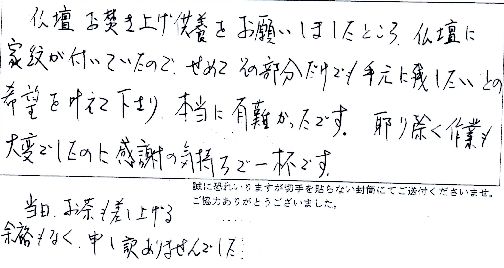 仏壇 お焚き上げ供養をお願いしましたところ、仏壇に
家紋が付いていたので、せめてその部分だけでも手元に残したいとの
希望を叶えて下さり、本当に有難かったです。 取り除く作業も
大変でしたのに感謝の気持ちで一杯です。
誠に恐れいりますが切手を貼らない封筒にてご送付くださいませ。
ご協力ありがとうございました。
当日、お茶も差し上げる
余裕もなく、申し訳ありませんでした